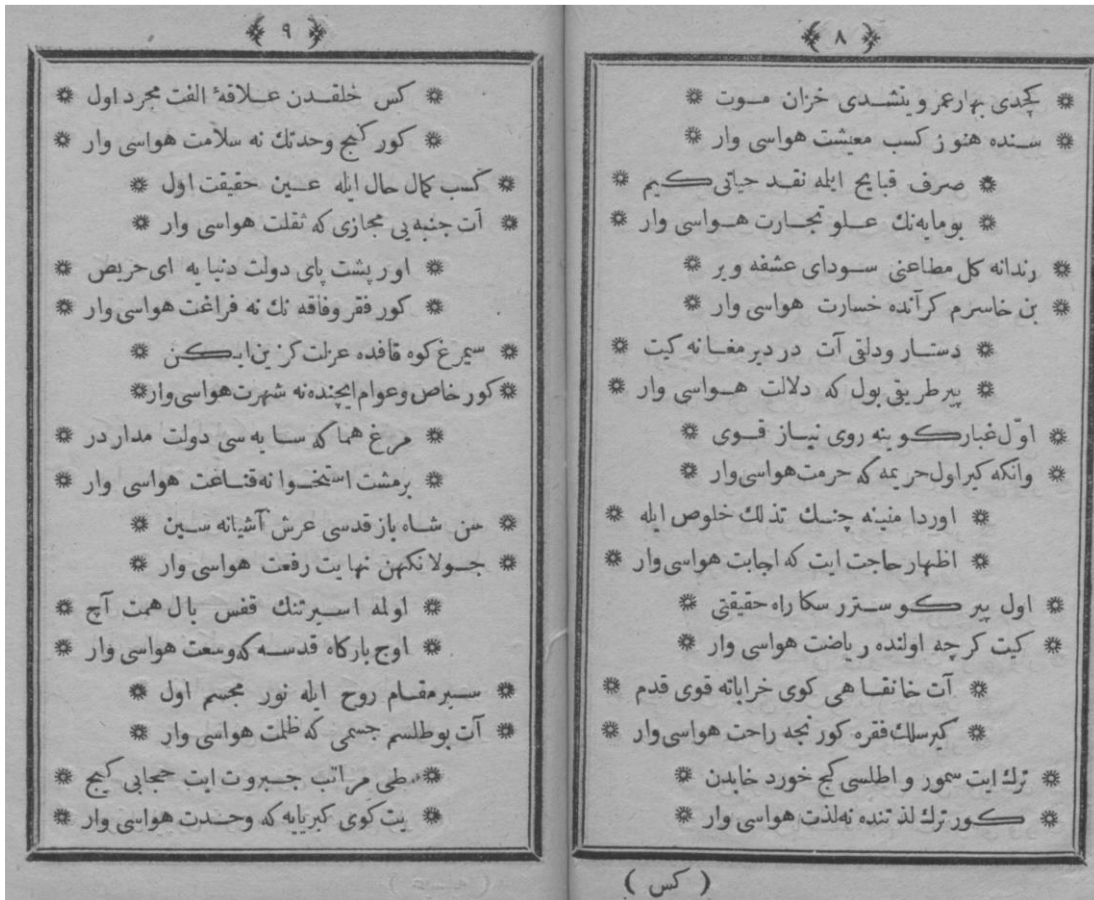 ﴿ ٨ ﴾
❋ كچدی بهار عمر و یتشدی خزان موت ❋
❋ سنده هنوز كسب معیشت هواسی وار ❋
❋ صرف قبایح ایله نقد حیاتی كیم ❋
❋ بومایه‌نك علو تجارت هواسی وار ❋
❋ رندانه كل مطاعنی سودای عشقه ویر ❋
❋ بن خاسرم كرآنده خسارت هواسی وار ❋
❋ دستار ودلقی آت در دیر مغانه كیت ❋
❋ پیر طریقی بول كه دلالت هواسی وار ❋
❋ اوّل غبار كوینه روی نیاز قوی ❋
❋ وانكه كیر اول حریمه كه حرمت هواسی وار ❋
❋ اوردا منینه چنك تذلك خلوص ایله ❋
❋ اظهار حاجت ایت كه اجابت هواسی وار ❋
❋ اول پیر كوسترر سكا راه حقیقتی ❋
❋ كیت كرچه اولنده ریاضت هواسی وار ❋
❋ آت خانقاهی كوی خراباته قوی قدم ❋
❋ كیر سلك فقره كور نجه راحت هواسی وار ❋
❋ ترك ایت سمور و اطلسی كچ خورد خابدن ❋
❋ كور ترك لذتنده نه لذت هواسی وار ❋
( كس )
﴿ ٩ ﴾
❋ كس خلقدن علاقهٔ الفت مجرد اول ❋
❋ كور كنج وحدتك نه سلامت هواسی وار ❋
❋ كسب كمال حال ایله عین حقیقت اول ❋
❋ آت جنبه‌یی مجازی كه ثقلت هواسی وار ❋
❋ اور پشت پای دولت دنیا یه ای حریص ❋
❋ كور فقر وفاقه نك نه فراغت هواسی وار ❋
❋ سیمرغ كوه قافده عزلت كزین ایكن ❋
❋ كور خاص وعوام ایچنده نه شهرت هواسی وار ❋
❋ مرغ هما كه سایه سی دولت مدار در ❋
❋ برمشت استخوانه قناعت هواسی وار ❋
❋ سن شاه باز قدسی عرش آشیانه سین ❋
❋ جولانكهن نهایت رفعت هواسی وار ❋
❋ اولمه اسیر تنك قفس بال همت آچ ❋
❋ اوج بارگاه قدسه كه وسعت هواسی وار ❋
❋ سیر مقام روح ایله نور مجسم اول ❋
❋ آت بو طلسم جسمی كه ظلمت هواسی وار ❋
❋ طی مراتب جبروت ایت حجابی كچ ❋
❋ یت كوی كبریایه كه وحدت هواسی وار ❋